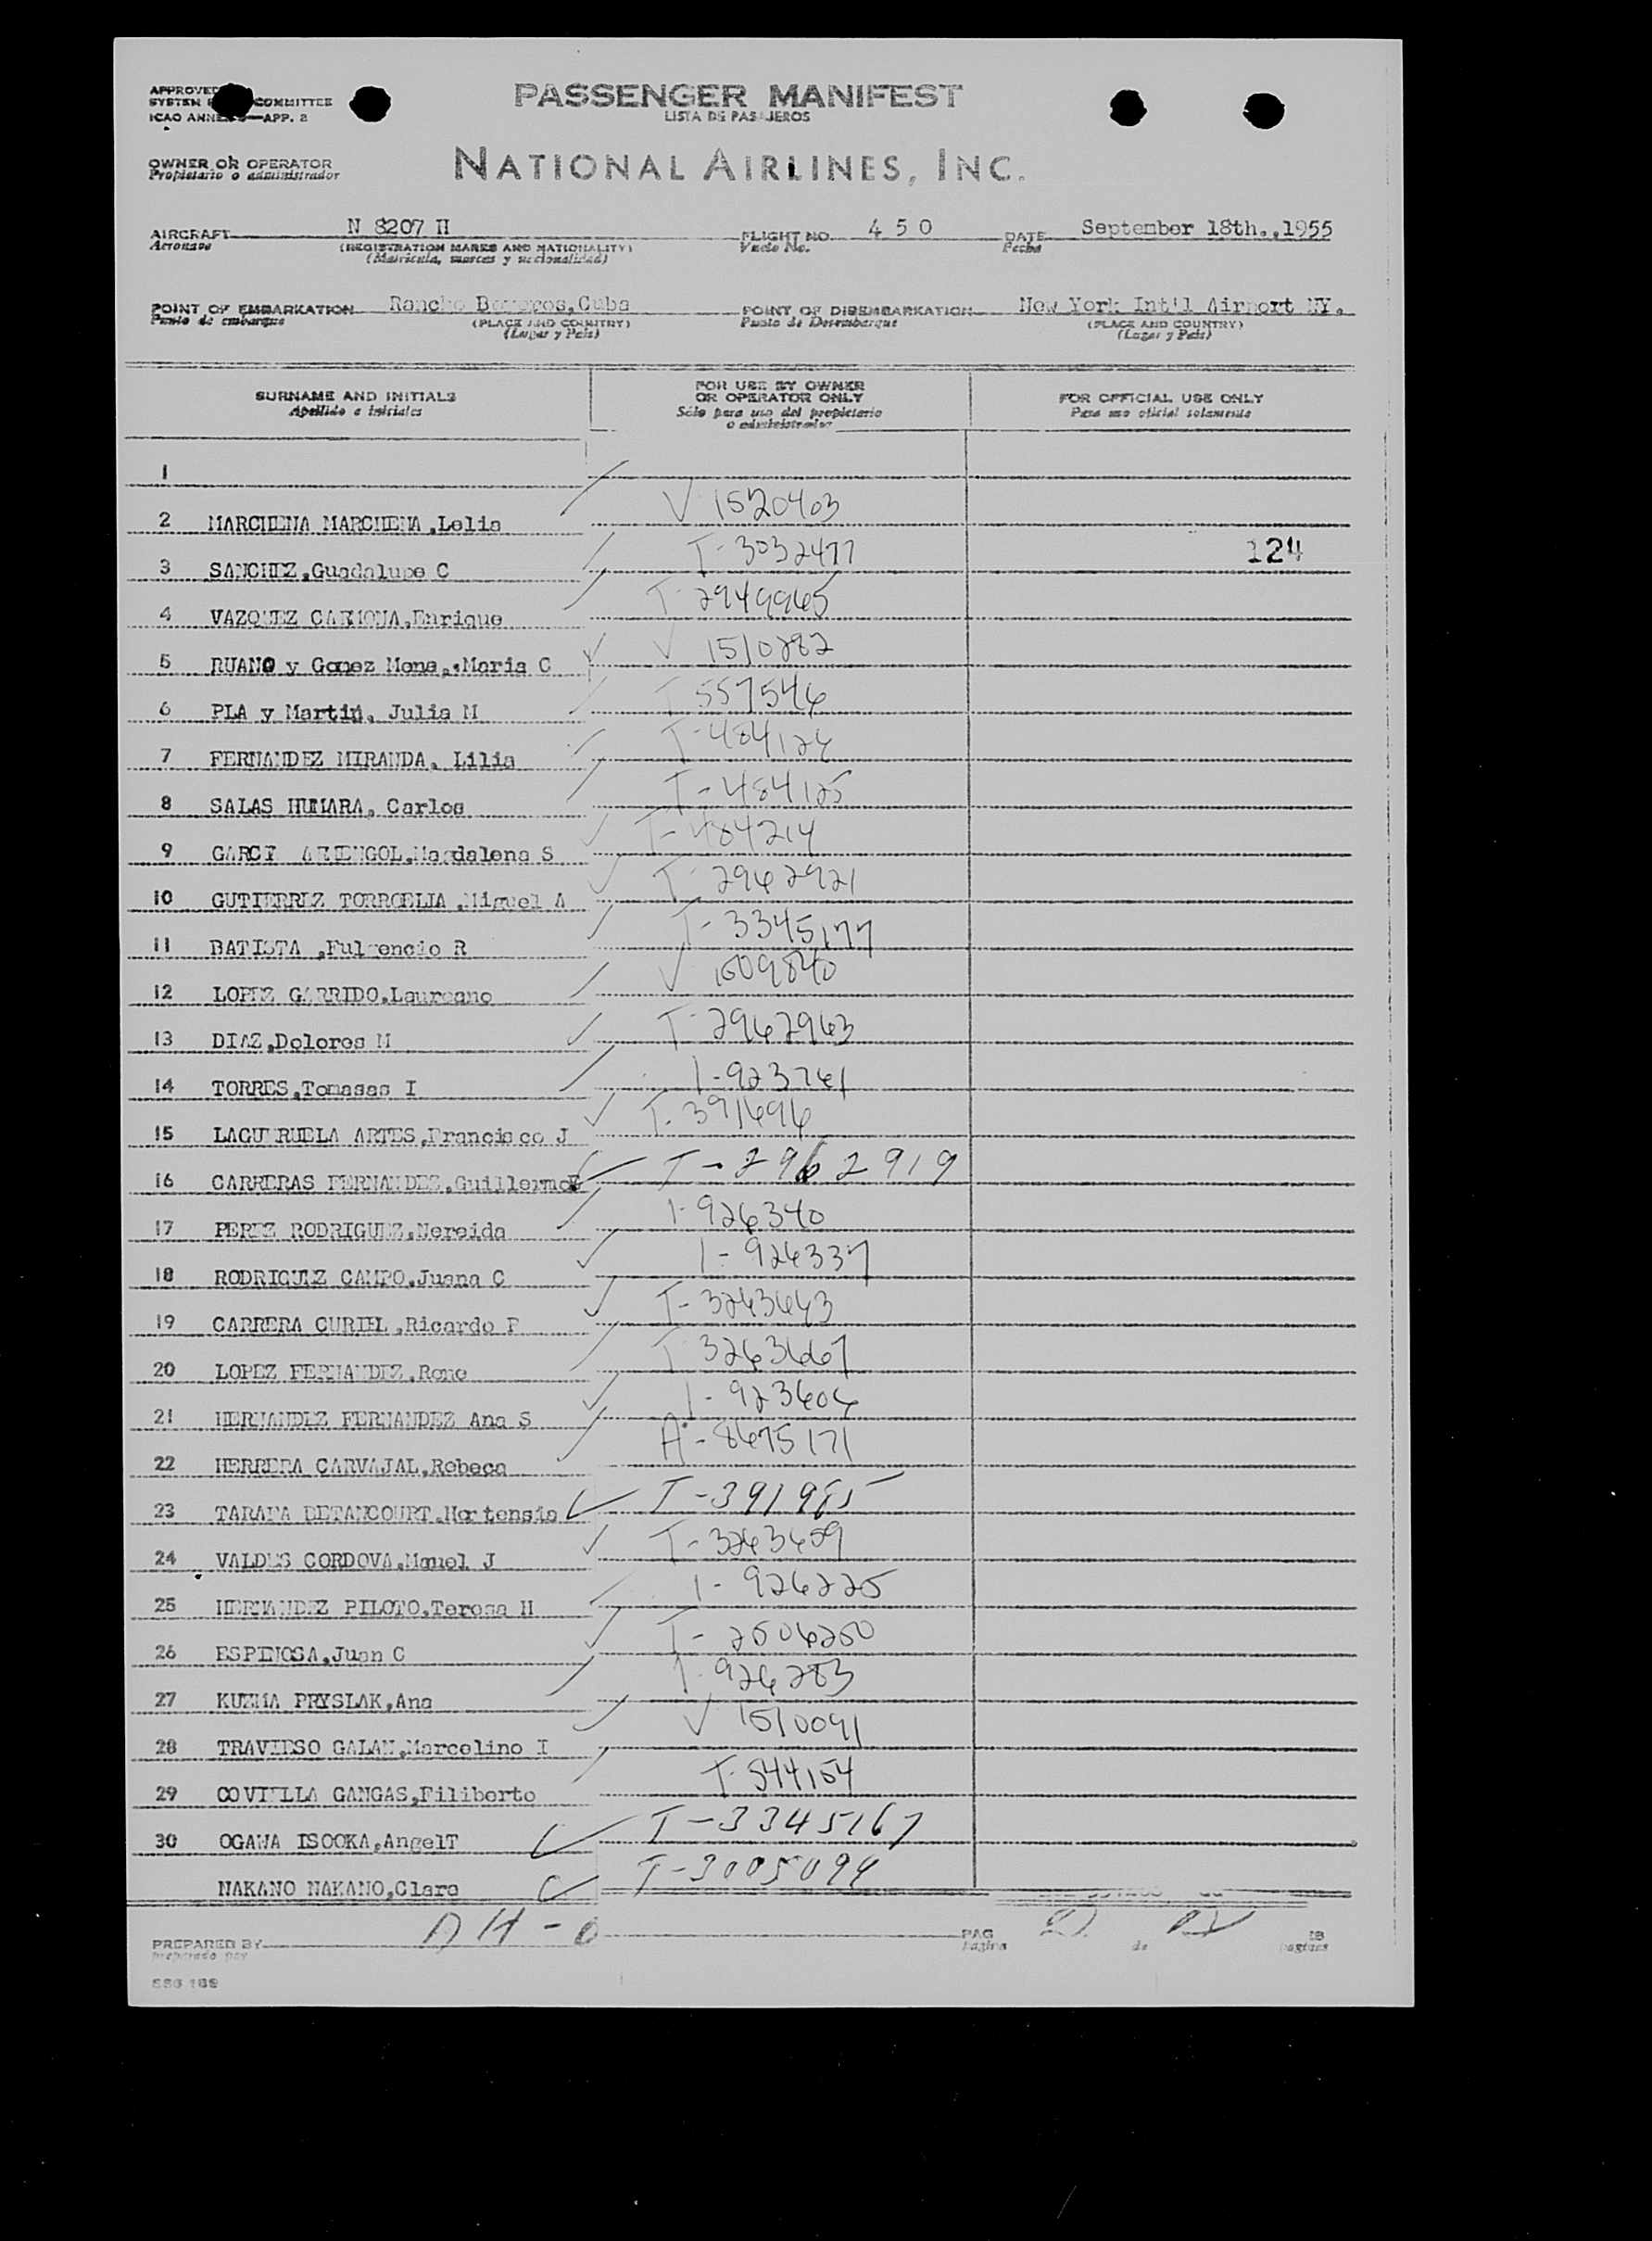 APPROVED COMMITTEE
SYSTEM
ICAO ANNEX APP. 2
PASSENGER MANIFEST
LISTA DE PASAJEROS
OWNER OR OPERATOR
Propietario o administrador
NATIONAL AIRLINES, INC.
AIRCRAFT N 8207 H FLIGHT NO. 4 5 0 DATE September 18th.,1955
Aeronave (REGISTRATION MARKS AND NATIONALITY) Vuelo No. Fecha
(Matrícula, marcas y nacionalidad)
POINT OF EMBARKATION Rancho Boyeros,Cuba POINT OF DISEMBARKATION New York Int'l Airport NY.
Punto de embarque (PLACE AND COUNTRY) Punto de Desembarque (PLACE AND COUNTRY)
(Lugar y País) (Lugar y País)
SURNAME AND INITIALS FOR USE BY OWNER OR OPERATOR ONLY FOR OFFICIAL USE ONLY
Apellido e iniciales Sólo para uso del propietario o administrador Para uso oficial solamente
1
2 MARCHENA MARCHENA,Lelia V 1520403
3 SANCHEZ,Guadalupe C T-3032477 124
4 VAZQUEZ CARMONA,Enrique T-2949965
5 RUANO y Gomez Mena,.Maria C V 1510282
6 PLA y Martin, Julia M T 557546
7 FERNANDEZ MIRANDA, Lilia T-484126
8 SALAS HUMARA, Carlos T-484125
9 GARCI ARMENGOL,Magdalena S T-484214
10 GUTIERREZ TORROELIA,Miguel A T-2962921
11 BATISTA ,Fulgencio R T-3345177
12 LOPEZ GARRIDO,Laureano V 1509840
13 DIAZ,Dolores M T-2962963
14 TORRES,Tomasas I I-923761
15 LAGUERUELA ARTES,Francisco J T-391696
16 CARRERAS FERNANDEZ,Guillermo T-2962919
17 PEREZ RODRIGUEZ,Nereida I-926340
18 RODRIGUEZ CAMPO,Juana C I-926337
19 CARRERA CURIEL,Ricardo F T-3263643
20 LOPEZ FERNANDEZ,Rene T 3263667
21 HERNANDEZ FERNANDEZ Ana S I-923606
22 HERRERA CARVAJAL,Rebeca A-8675171
23 TARAFA BETANCOURT,Hortensia T-391985
24 VALDES CORDOVA,Manuel J T-3263659
25 HERNANDEZ PILOTO,Teresa H I-926225
26 ESPINOSA,Juan C T-2506250
27 KUZMA PRYSLAK,Ana I-926283
28 TRAVIESO GALAN,Marcelino I V 1510091
29 COVIELLA GANGAS,Filiberto T-544154
30 OGAWA ISOOKA,AngelT T-3345167
NAKANO NAKANO,Clara T-3005094
PREPARED BY PAG
preparado por Página de